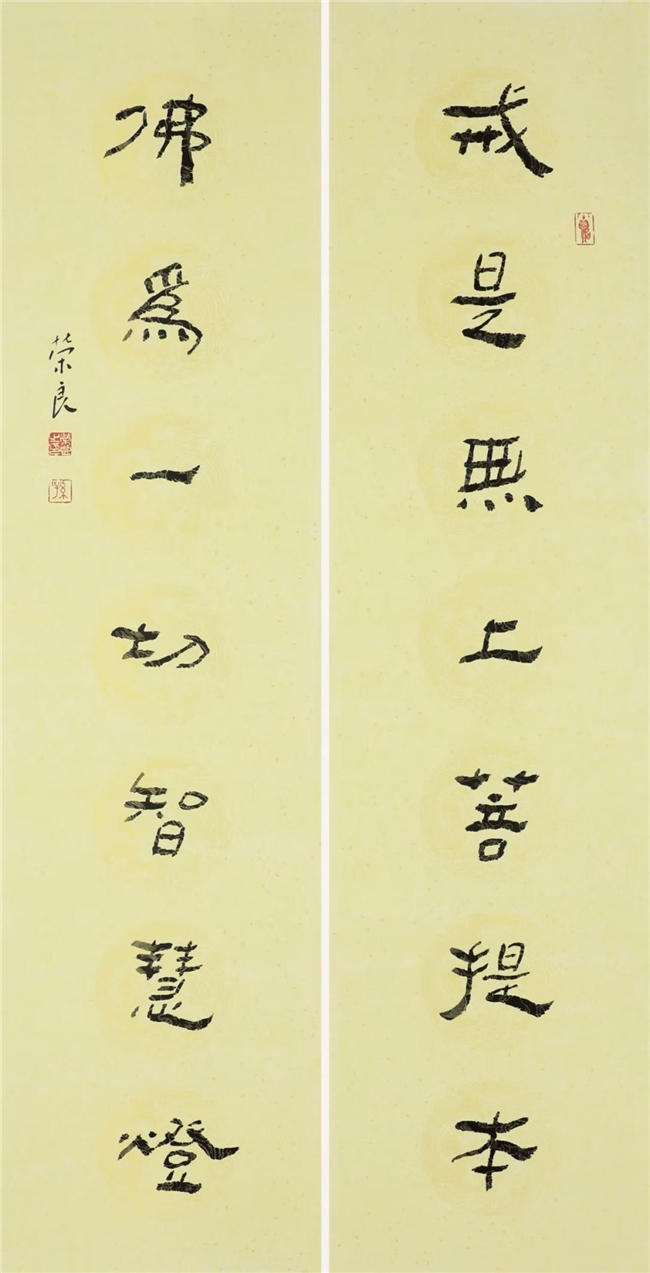 戒是無上菩提本
佛爲一切智慧燈
荣良